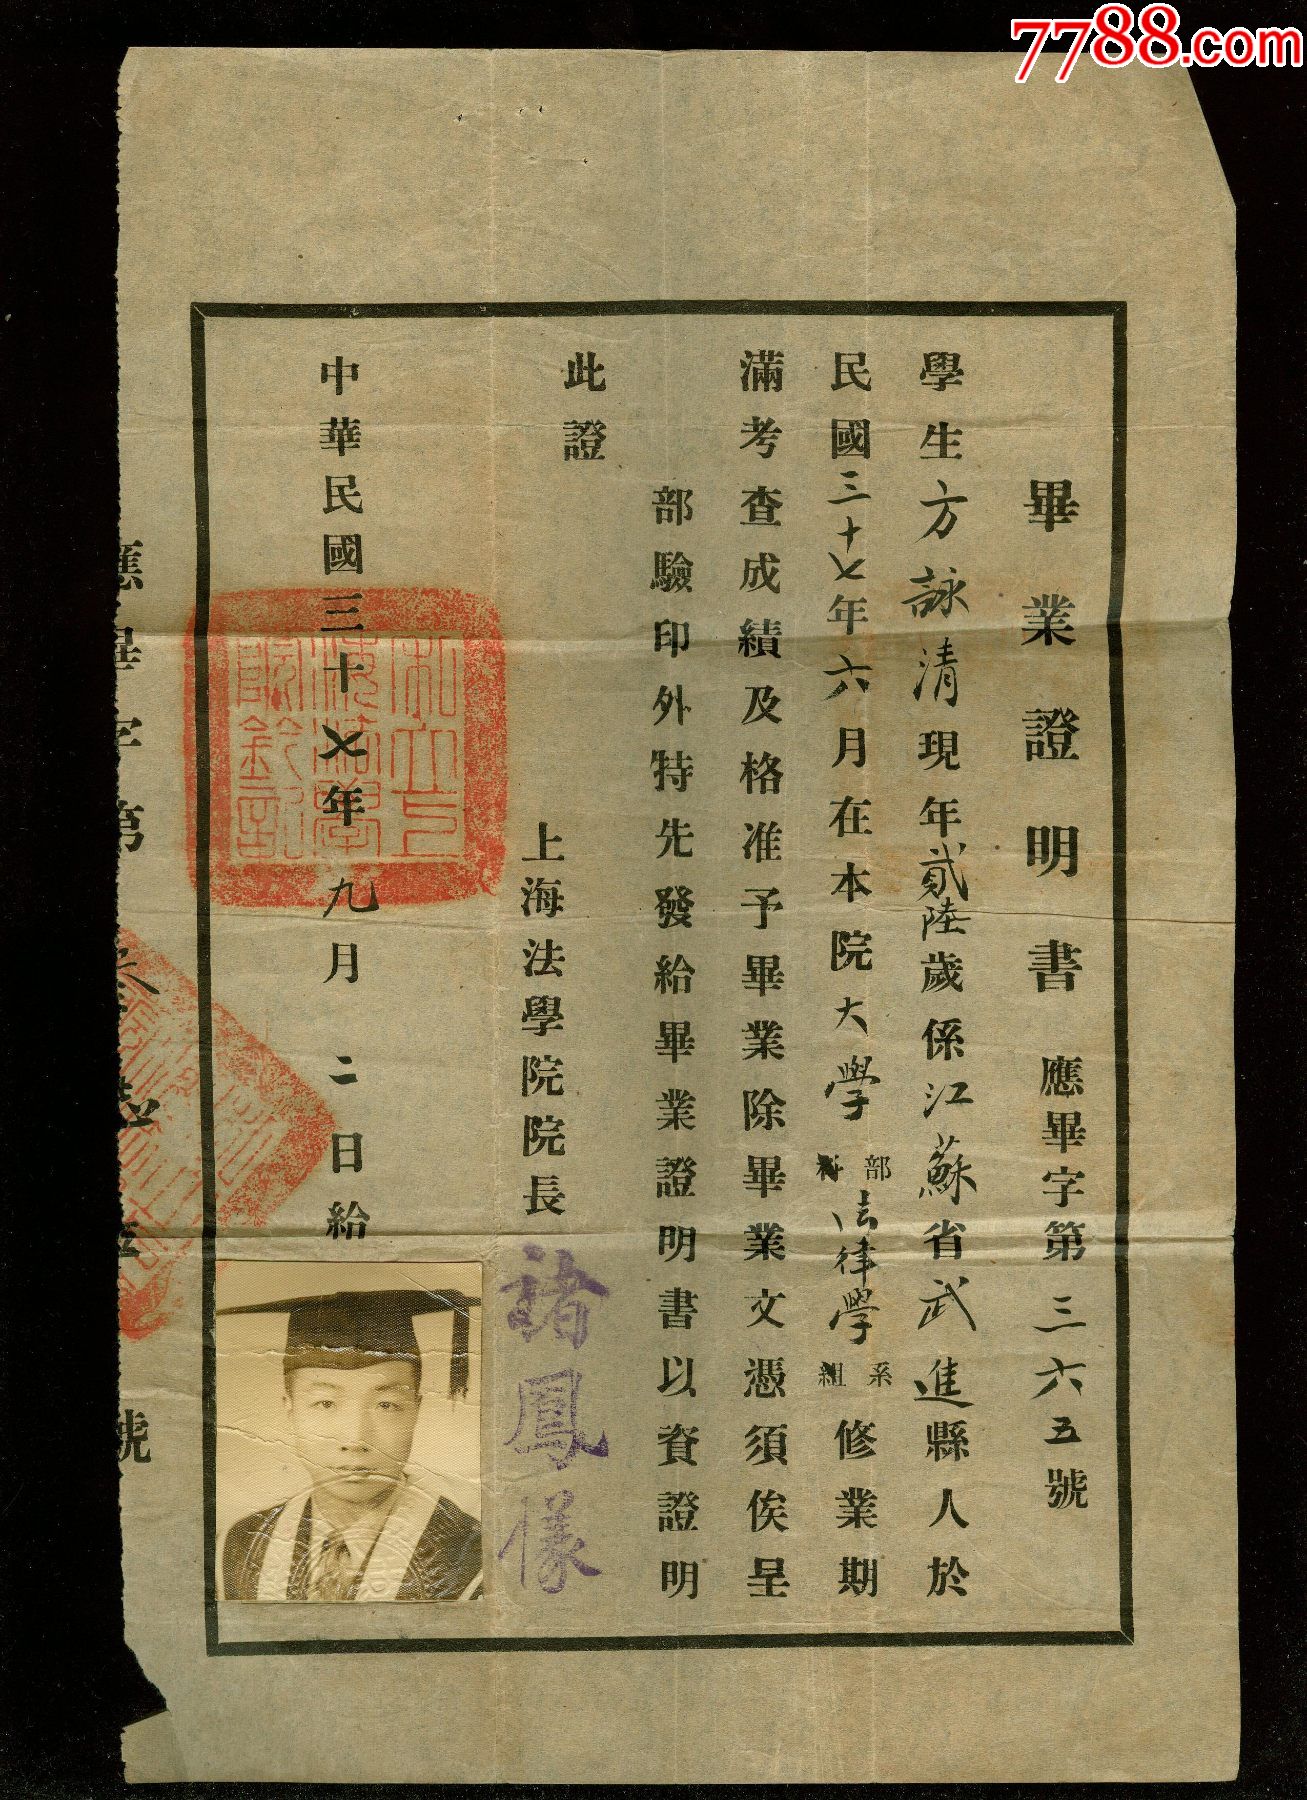 7788.com
畢業證明書 應畢字第三六五號
學生方詠清現年貳陸歲係江蘇省武進縣人於
民國三十七年六月在本院大學部科法律學系組修業期
滿考查成績及格准予畢業除畢業文憑須俟呈
部驗印外特先發給畢業證明書以資證明
此證
上海法學院院長 褚鳳儀
中華民國三十七年九月二日給
應畢字第
號